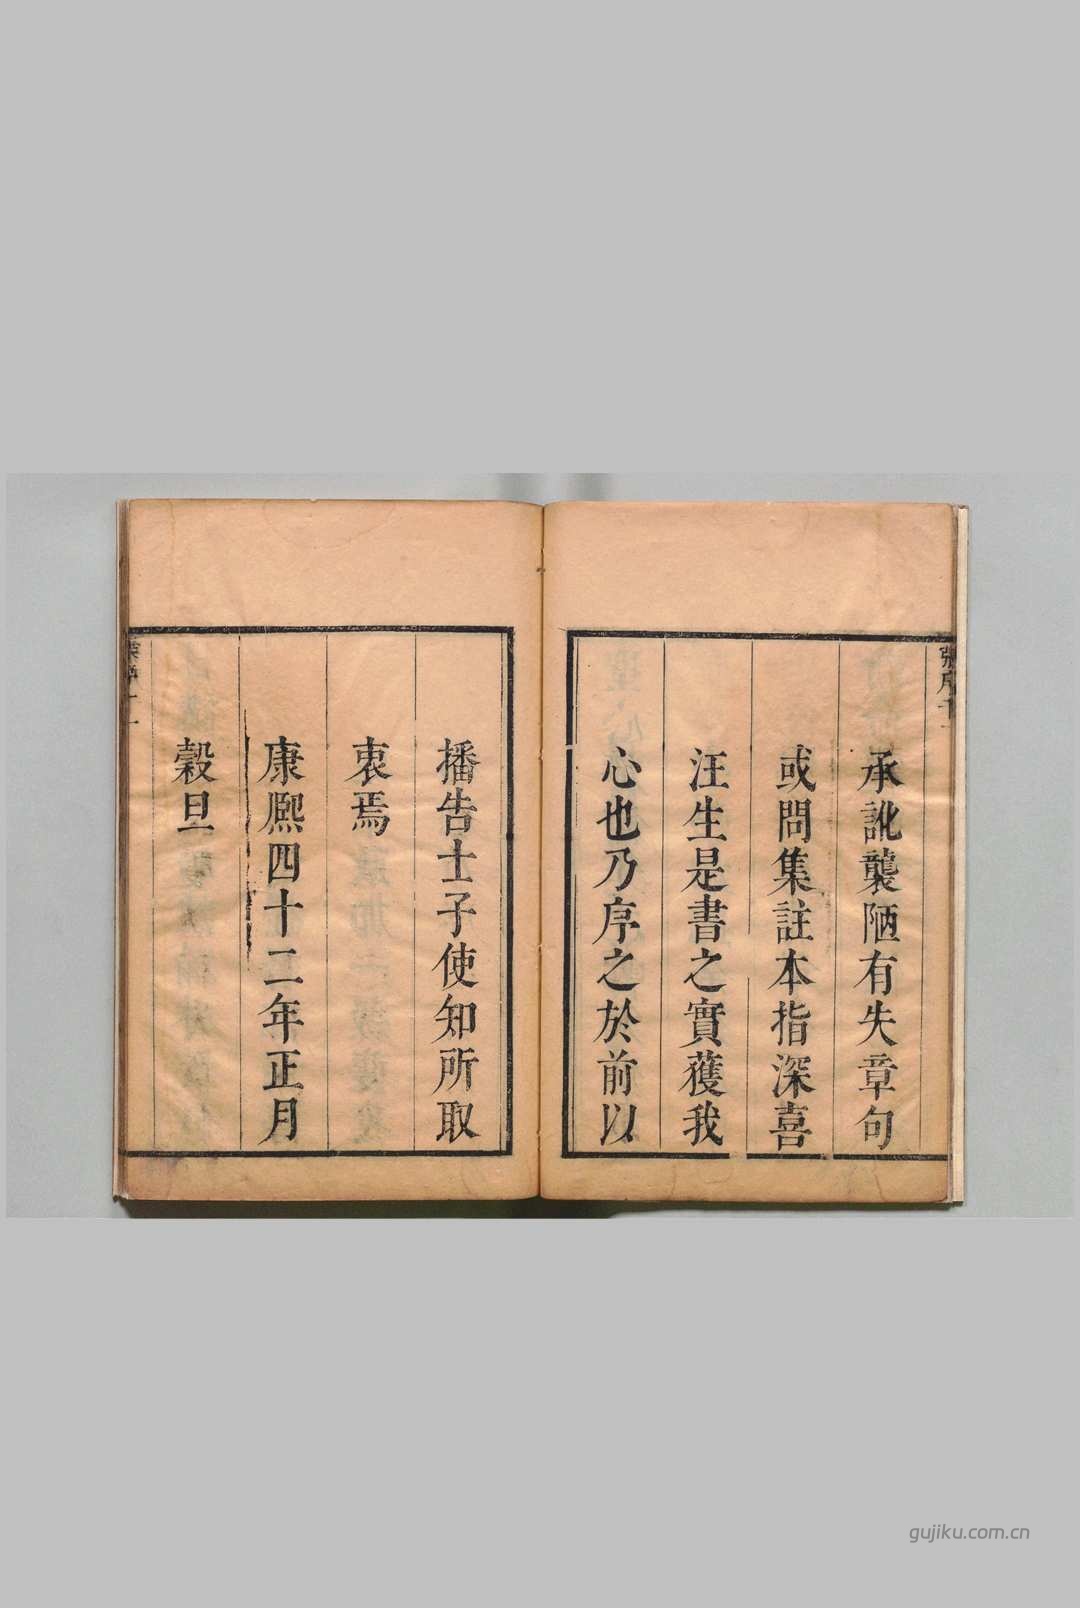 承訛襲陋有失章句
或問集註本指深喜
汪生是書之實獲我
心也乃序之於前以
播告士子使知所取
衷焉
康熙四十二年正月
穀旦
gujiku.com.cn